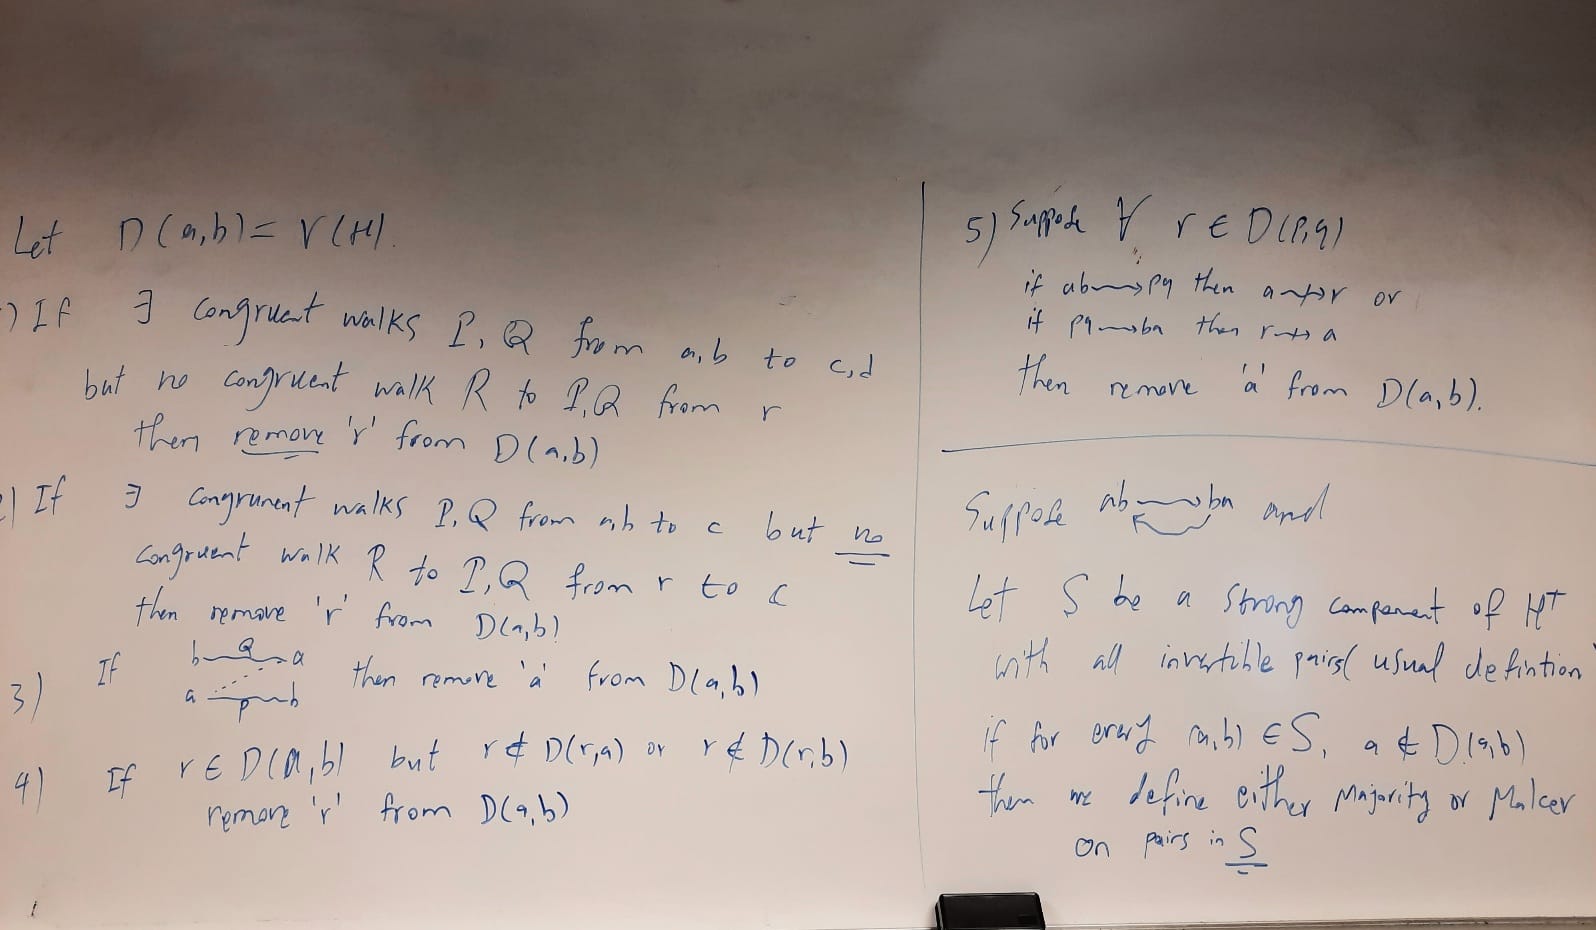 Let D(a,b) = V(H).
) If ∃ congruent walks P, Q from a,b to c,d
but no congruent walk R to P,Q from r
then remove 'r' from D(a,b)
2) If ∃ congrunent walks P,Q from a,b to c but no
congruent walk R to P,Q from r to c
then remove 'r' from D(a,b)
3) If b Q a
a P b
then remove 'a' from D(a,b)
4) If r ∈ D(a,b) but r ∉ D(r,a) or r ∉ D(r,b)
remove 'r' from D(a,b)
5) Suppose ∀ r ∈ D(p,q)
if ab ⇝ pq then a ↛ r or
if pq ⇝ ba then r ↛ a
then remove 'a' from D(a,b).
Suppose ab ⇝ ba and
Let S be a strong component of H+
with all invertible pairs( usual defintion
if for every (a,b) ∈ S, a ∉ D(a,b)
then we define either Majority or Malcev
on pairs in S